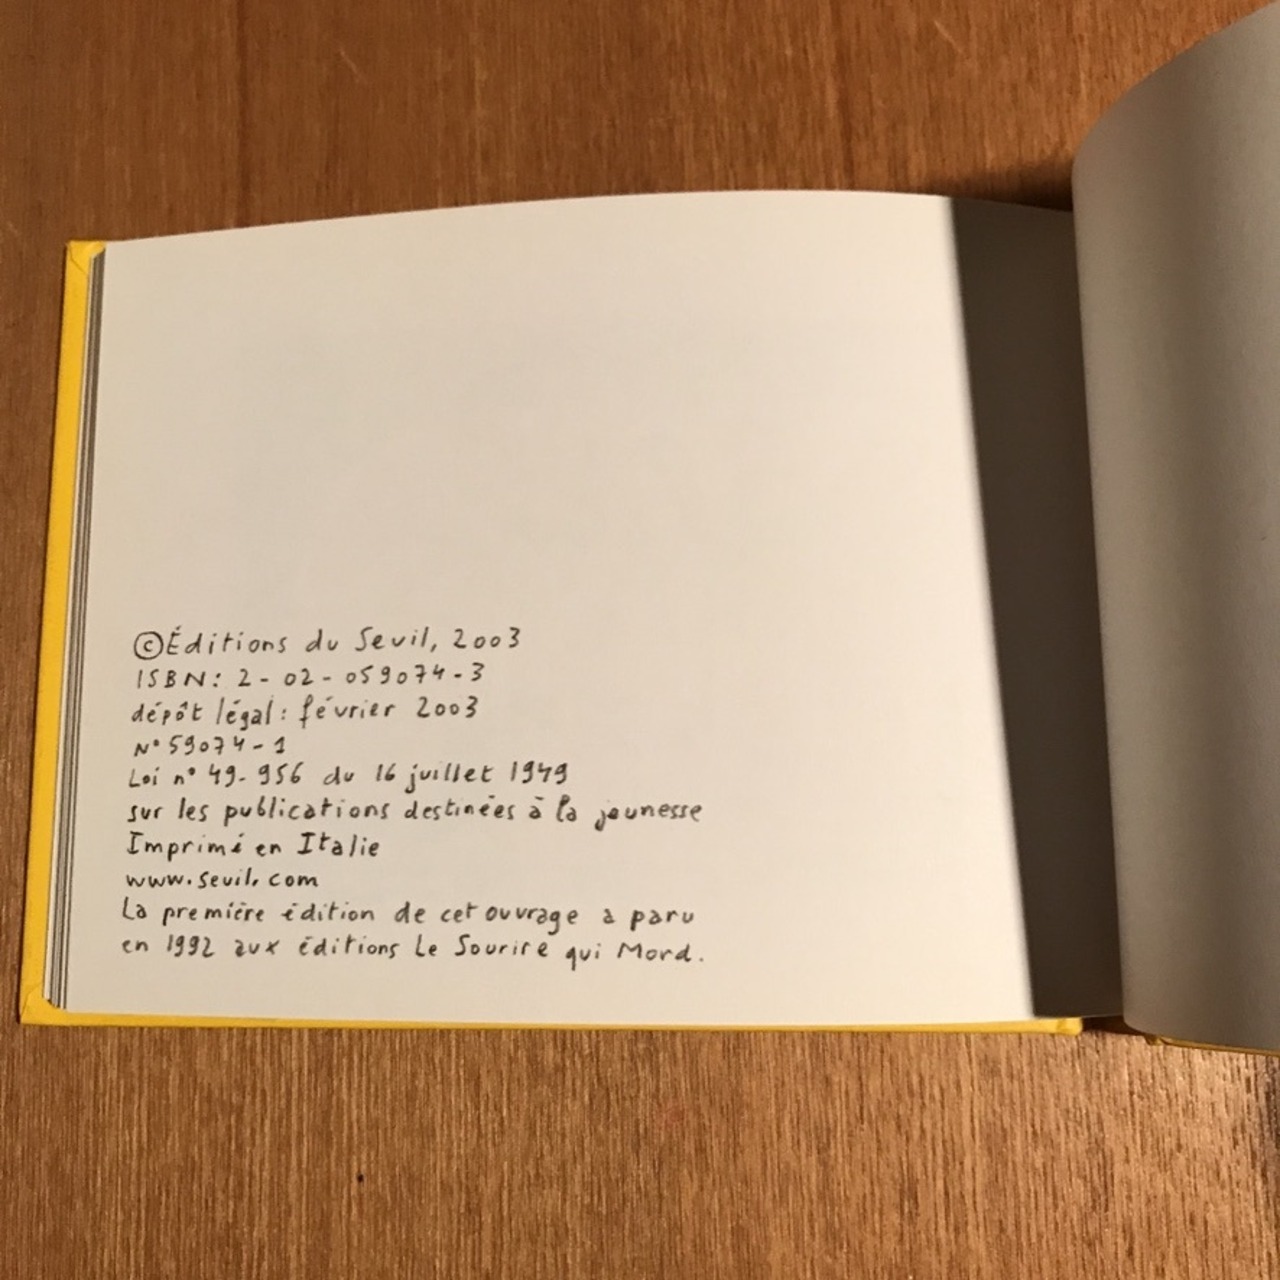 ©Éditions du Seuil, 2003
ISBN: 2-02-059074-3
dépôt légal: février 2003
N° 59074-1
Loi n° 49-956 du 16 juillet 1949
sur les publications destinées à la jeunesse
Imprimé en Italie
www.seuil.com
La première édition de cet ouvrage a paru
en 1992 aux éditions Le Sourire qui Mord.